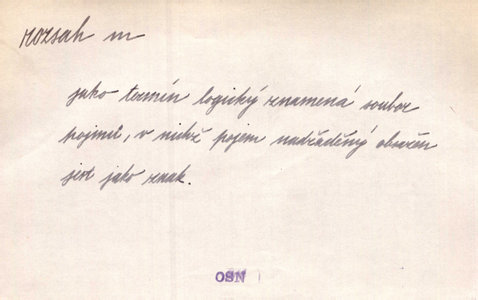 rozsah m
jako termín logický znamená soubor
pojmů, v nichž pojem nadřáděný obsažen
jest jako znak.
OSN